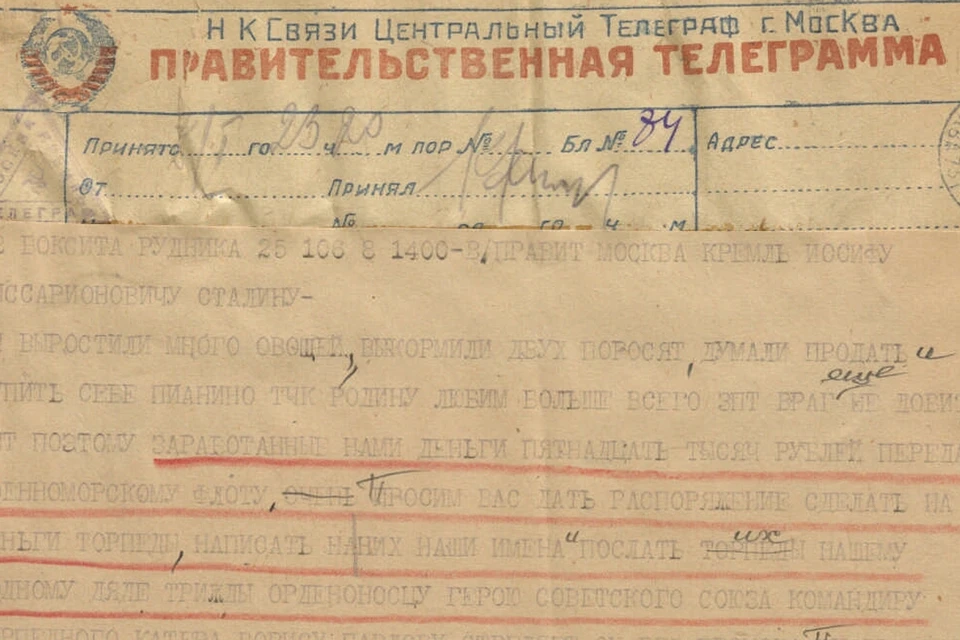 НКСВЯЗИ ЦЕНТРАЛЬНЫЙ ТЕЛЕГРАФ г. МОСКВА
ПРАВИТЕЛЬСТВЕННАЯ ТЕЛЕГРАММА
ПРИНЯТО 1/5 ГО 23 Ч 20 М ПОР № БЛ № 84 АДРЕС
ОТ ПРИНЯЛ
№ ГО Ч М
БОКСИТА РУДНИКА 25 106 8 1400-В/ПРАВИТ МОСКВА КРЕМЛЬ ИОСИФУ
ИССАРИОНОВИЧУ СТАЛИНУ-
ВЫРОСТИЛИ МНОГО ОВОЩЕЙ, ВЫКОРМИЛИ ДВУХ ПОРОСЯТ, ДУМАЛИ ПРОДАТЬ и
УПИТЬ СЕБЕ ПИАНИНО ТЧК РОДИНУ ЛЮБИМ БОЛЬШЕ ВСЕГО ЗПТ ВРАГ еще НЕ ДОБИТ
ПОЭТОМУ ЗАРАБОТАННЫЕ НАМИ ДЕНЬГИ ПЯТНАДЦАТЬ ТЫСЯЧ РУБЛЕЙ ПЕРЕДА
ОЕННОМОРСКОМУ ФЛОТУ, ОЧЕНЬ ПРОСИМ ВАС ДАТЬ РАСПОРЯЖЕНИЕ СДЕЛАТЬ НА
НЬГИ ТОРПЕДЫ, НАПИСАТЬ НАНИХ НАШИ ИМЕНА "ПОСЛАТЬ ТОРПЕДЫ их НАШЕМУ
ОДНОМУ ДЯДЕ ТРИЖДЫ ОРДЕНОНОСЦУ ГЕРОЮ СОВЕТСКОГО СОЮЗА КОМАНДИРУ
КАТЕРА БОРИСУ